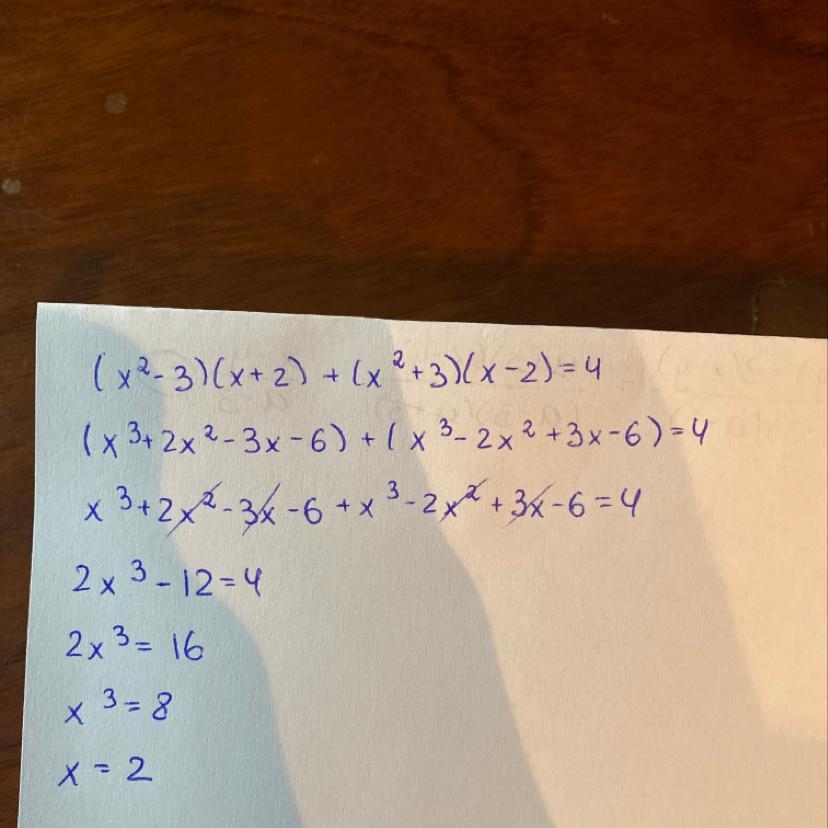 (x²-3)(x+2) + (x²+3)(x-2)=4
(x³+2x²-3x-6)+(x³-2x²+3x-6)=4
x³+2x²-3x-6+x³-2x²+3x-6=4
2x³-12=4
2x³=16
x³=8
x=2